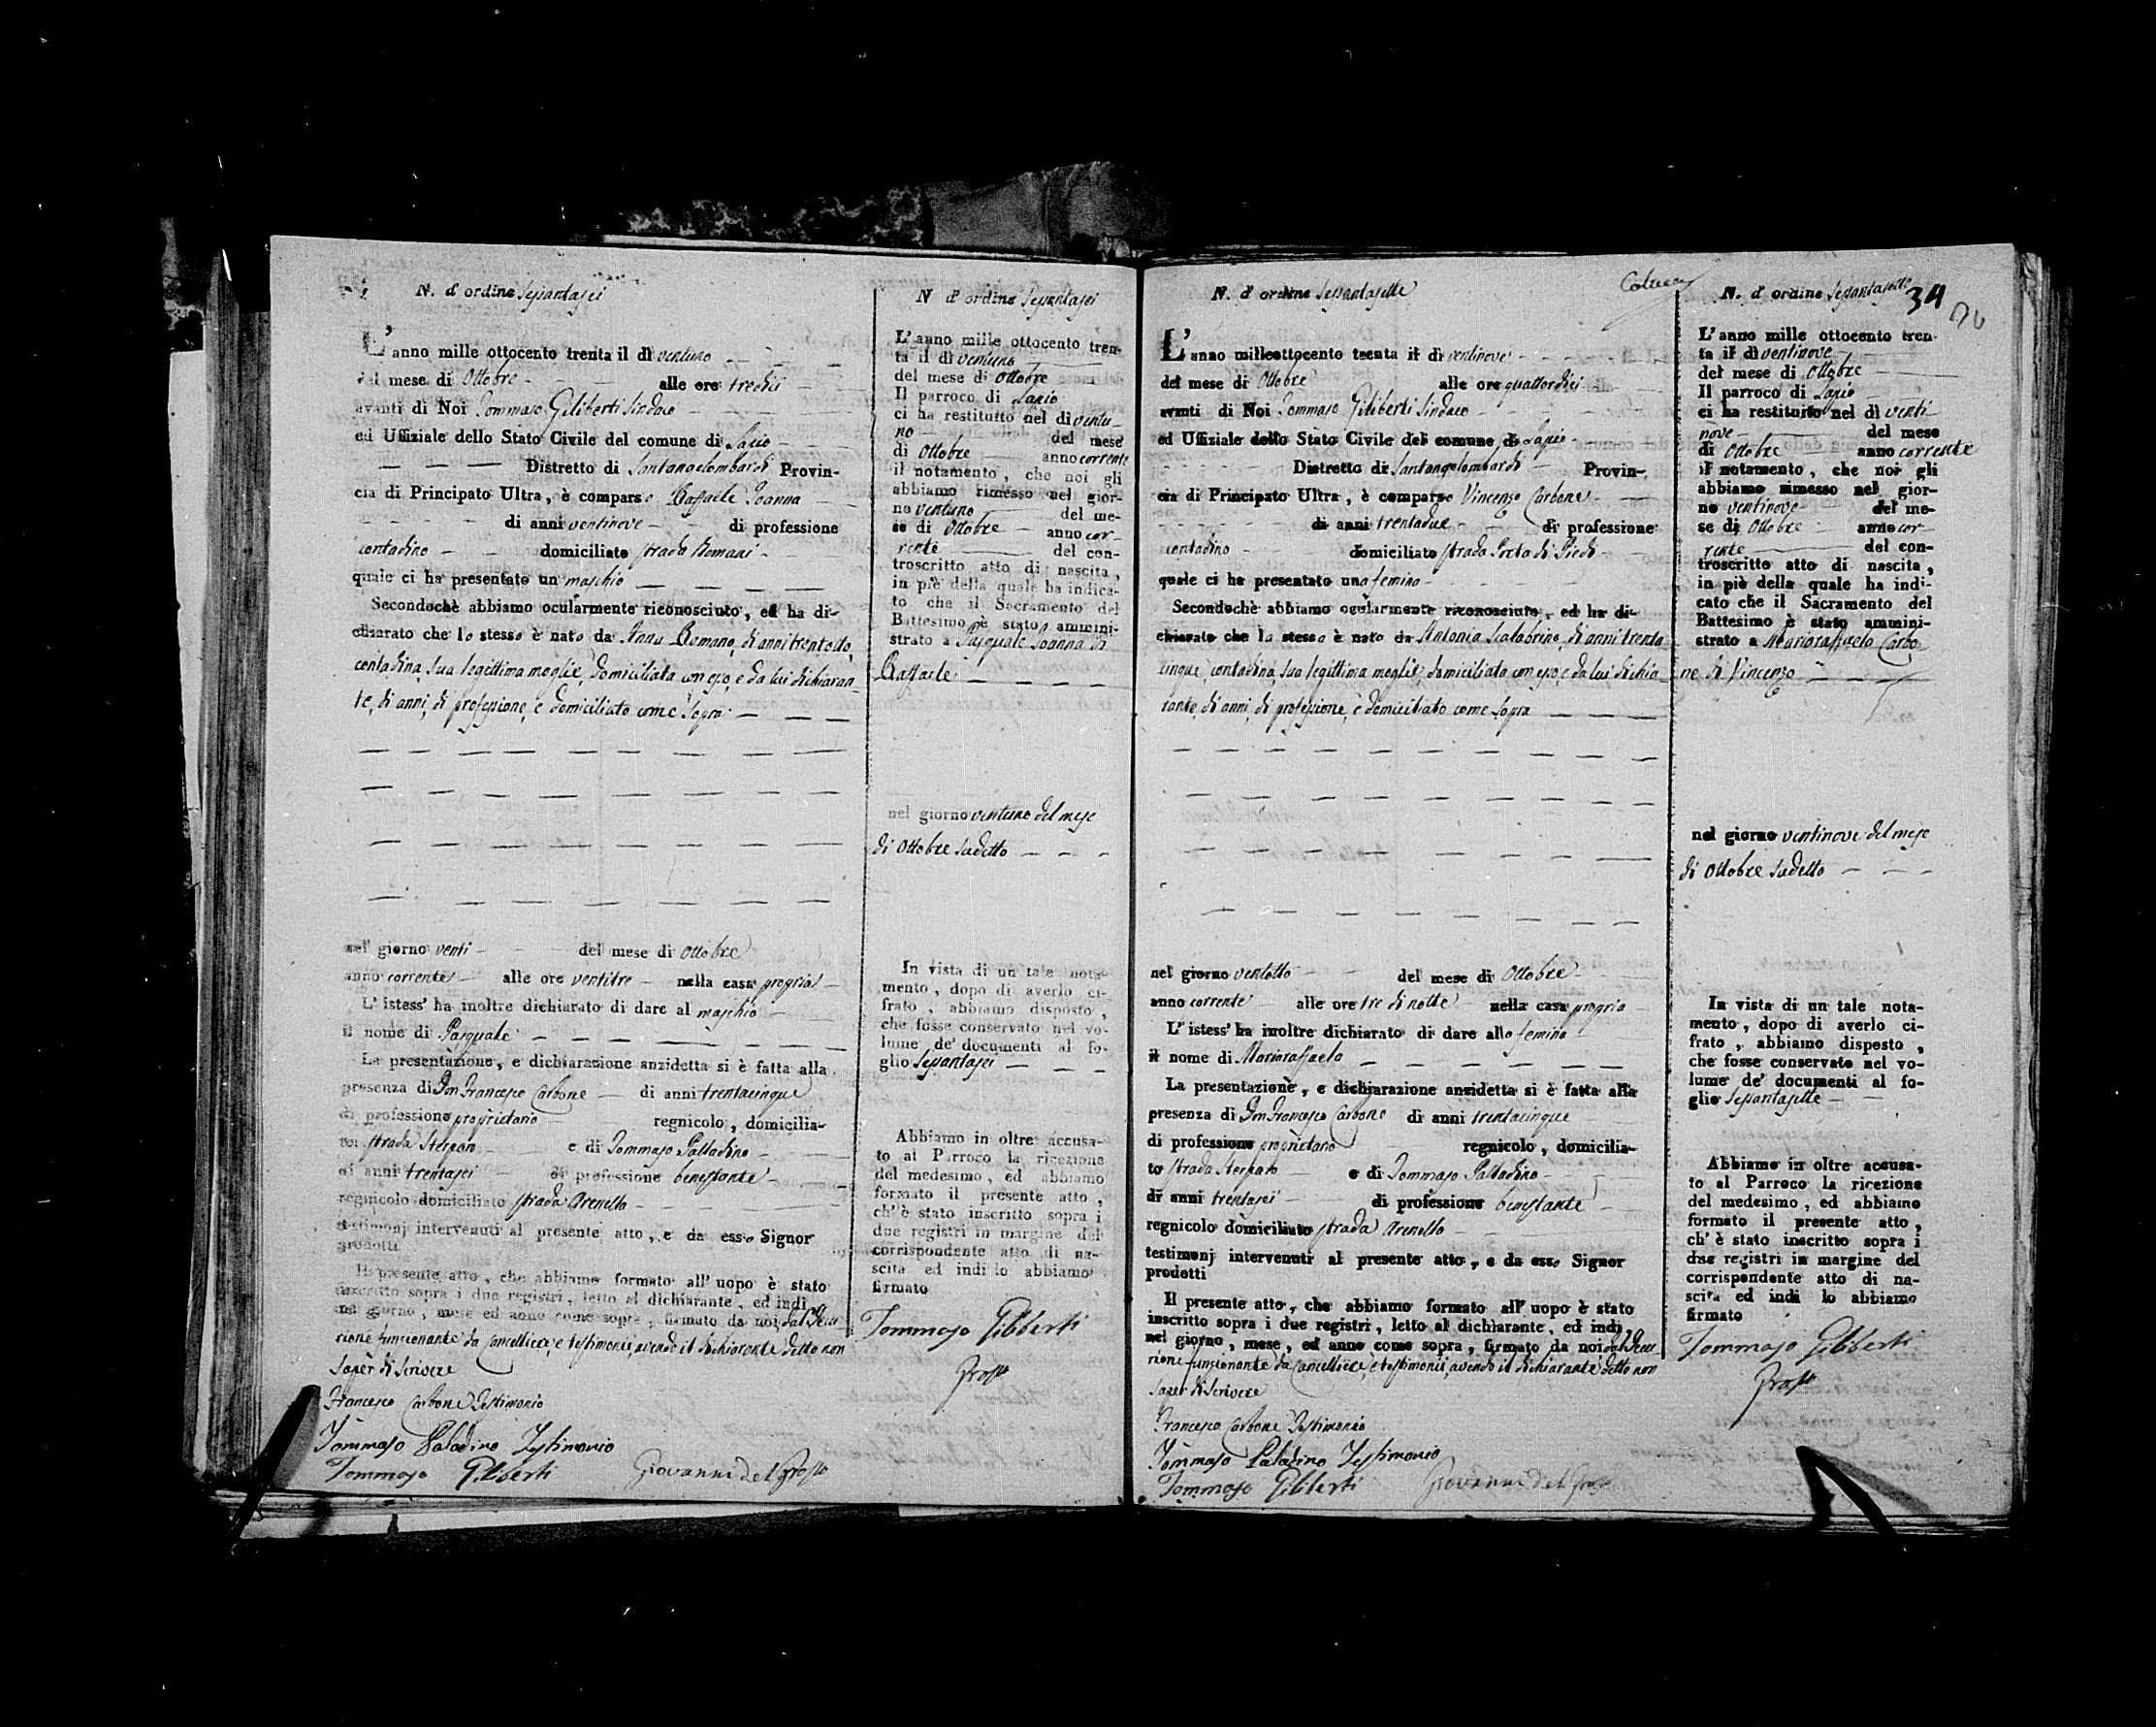 N. d'ordine Sessantasei
L'anno mille ottocento trenta il dì ventuno
del mese di Ottobre alle ore tredici
avanti di Noi Tommaso Giliberti Sindaco
ed Uffiziale dello Stato Civile del comune di Lapio
Distretto di Santangelombardi Provin-
cia di Principato Ultra, è comparso Raffaele Ioanna
di anni ventinove di professione
contadino domiciliato strada Romani
quale ci ha presentato un maschio
Secondochè abbiamo ocularmente riconosciuto, ed ha di-
chiarato che lo stesso è nato da Anna Romano, di anni trentotto,
contadina, sua legittima moglie, domiciliata con esso, e da lui dichiaran-
te, di anni, di professione, e domiciliato come sopra
nel giorno venti del mese di Ottobre
anno corrente alle ore ventitre nella casa propria
L'istess' ha inoltre dichiarato di dare al maschio
il nome di Pasquale
La presentazione, e dichiarazione anzidetta si è fatta alla
presenza di Don Francesco Carbone di anni trentacinque
di professione proprietario regnicolo, domicilia-
to strada e di Tommaso Palladino
di anni trentasei di professione benestante
regnicolo domiciliato strada Arenella
testimonj intervenuti al presente atto, e da esso Signor
prodotti
Il presente atto, che abbiamo formato all'uopo è stato
inscritto sopra i due registri, letto al dichiarante, ed indi
nel giorno, mese ed anno come sopra, firmato da noi, dal Decu-
rione funzionante da Cancelliere, e testimonii, avendo il dichiarante detto non
saper di scrivere
Francesco Carbone Testimonio
Tommaso Paladino Testimonio
Tommaso Giliberti Giovanni del Grosso
N d'ordine Sessantasei
L'anno mille ottocento tren-
ta il dì ventuno
del mese di Ottobre
Il parroco di Lapio
ci ha restituito nel dì ventu-
no del mese
di Ottobre anno corrente
il notamento, che noi gli
abbiamo rimesso nel gior-
no ventuno del me-
se di Ottobre anno cor-
rente del con-
troscritto atto di nascita,
in piè della quale ha indica-
to che il Sacramento del
Battesimo è stato ammini-
strato a Pasquale Ioanna di
Raffaele
nel giorno ventuno del mese
di Ottobre sudetto
In vista di un tale nota-
mento, dopo di averlo ci-
frato, abbiamo disposto,
che fosse conservato nel vo-
lume de' documenti al fo-
glio Sessantasei
Abbiamo in oltre accusa-
to al Parroco la ricezione
del medesimo, ed abbiamo
formato il presente atto,
ch'è stato inscritto sopra i
due registri in margine del
corrispondente atto di na-
scita ed indi lo abbiamo
firmato
Tommaso Giliberti
Grosso
N. d'ordine Sessantasette
L'anno milleottocento trenta il dì ventinove
del mese di Ottobre alle ore quattordici
avanti di Noi Tommaso Giliberti Sindaco
ed Uffiziale dello Stato Civile del comune di Lapio
Distretto di Santangelombardi Provin-
cia di Principato Ultra, è comparso Vincenzo Carbone
di anni trentadue di professione
contadino domiciliato strada Porta di Piedi
quale ci ha presentato una femina
Secondochè abbiamo ocularmente riconosciuto, ed ha di-
chiarato che la stessa è nata da Antonia Scalabrino, di anni trenta
cinque, contadina, sua legittima moglie, domiciliata con esso, e da lui dichia-
rante, di anni, di professione, e domiciliato come sopra
nel giorno ventotto del mese di Ottobre
anno corrente alle ore tre di notte nella casa propria
L'istess' ha inoltre dichiarato di dare alla femina
il nome di Mariaraffaela
La presentazione, e dichiarazione anzidetta si è fatta alla
presenza di Don Francesco Carbone di anni trentacinque
di professione proprietario regnicolo, domicilia-
to strada e di Tommaso Palladino
di anni trentasei di professione benestante
regnicolo domiciliato strada Arenella
testimonj intervenuti al presente atto, e da esso Signor
prodotti
Il presente atto, che abbiamo formato all'uopo è stato
inscritto sopra i due registri, letto al dichiarante, ed indi
nel giorno, mese, ed anno come sopra, firmato da noi dal Decu
rione funzionante da Cancelliere, e testimonii, avendo il dichiarante detto non
saper di scrivere
Francesco Carbone Testimonio
Tommaso Paladino Testimonio
Tommaso Giliberti Giovanni del Grosso
N. d'ordine Sessantasette
34
L'anno mille ottocento tren-
ta il dì ventinove
del mese di Ottobre
Il parroco di Lapio
ci ha restituito nel dì venti-
nove del mese
di Ottobre anno corrente
il notamento, che noi gli
abbiamo rimesso nel gior-
no ventinove del me-
se di Ottobre anno cor-
rente del con-
troscritto atto di nascita,
in piè della quale ha indi-
cato che il Sacramento del
Battesimo è stato ammini-
strato a Mariaraffaela Carbo-
ne di Vincenzo
nel giorno ventinove del mese
di Ottobre sudetto
In vista di un tale nota-
mento, dopo di averlo ci-
frato, abbiamo disposto,
che fosse conservato nel vo-
lume de' documenti al fo-
glio Sessantasette
Abbiamo in oltre accusa-
to al Parroco la ricezione
del medesimo, ed abbiamo
formato il presente atto,
ch'è stato inscritto sopra i
due registri in margine del
corrispondente atto di na-
scita ed indi lo abbiamo
firmato
Tommaso Giliberti
Grosso